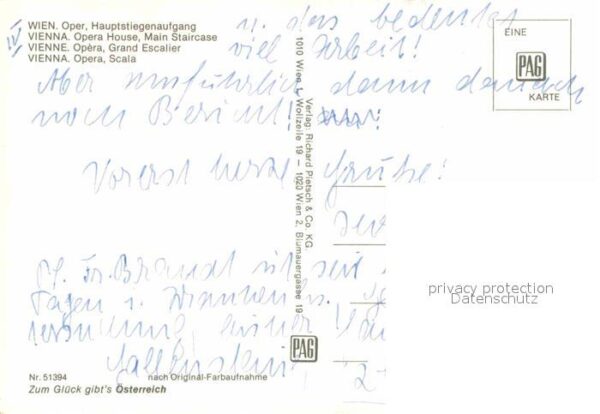 WIEN. Oper, Hauptstiegenaufgang
VIENNA. Opera House, Main Staircase
VIENNE. Opéra, Grand Escalier
VIENNA. Opera, Scala
IV
u. das bedeutet
viel Arbeit!
Aber ausführlich dann danach
noch Bericht!
Vorerst herzl. Grüße!
Fr. Brandt ist seit
Tagen i. Krankenhs.
EINE
PAG
KARTE
Verlag: Richard Pietsch & Co. KG
1010 Wien 1, Wollzeile 19 – 1020 Wien 2, Blumauergasse 19
PAG
privacy protection
Datenschutz
Nr. 51394
nach Original-Farbaufnahme
Zum Glück gibt's Österreich